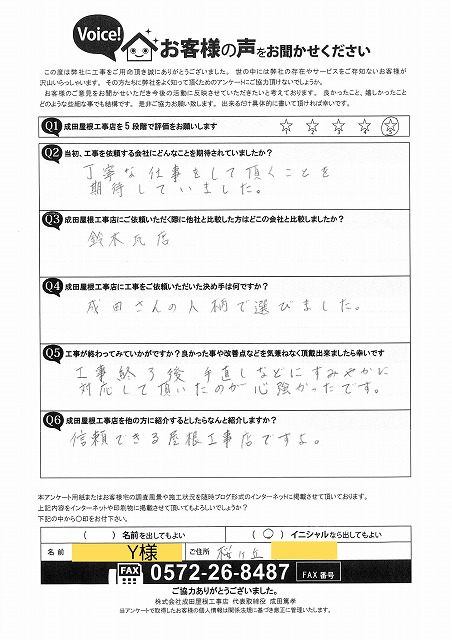 Voice!
お客様の声をお聞かせください
この度は弊社に工事をご用命頂き誠にありがとうございました。世の中には弊社の存在やサービスをご存知ないお客様が
沢山いらっしゃいます。その方たちに弊社をよく知って頂くためのアンケートにご協力頂けないでしょうか。
お客様のご意見をお聞かせいただき今後の活動に反映させていきたいと考えております。良かったこと、嬉しかったこと
どのような些細な事でも結構です。是非ご協力お願い致します。出来るだけ具体的に書いて頂ければ幸いです。
Q1 成田屋根工事店を5段階で評価をお願いします
1 2 3 4 5
Q2 当初、工事を依頼する会社にどんなことを期待されていましたか?
丁寧な仕事をして頂くことを
期待していました。
Q3 成田屋根工事店にご依頼いただく際に他社と比較した方はどこの会社と比較しましたか?
鈴木瓦店
Q4 成田屋根工事店に工事をご依頼いただいた決め手は何ですか?
成田さんの人柄で選びました。
Q5 工事が終わってみていかがですか?良かった事や改善点などを気兼ねなく頂戴出来ましたら幸いです
工事終了後 手直しなどにすみやかに
対応して頂いたのが心強かったです。
Q6 成田屋根工事店を他の方に紹介するとしたらなんと紹介しますか?
信頼できる屋根工事店ですよ。
本アンケート用紙またはお客様宅の調査風景や施工状況を随時ブログ形式のインターネットに掲載させて頂いております。
上記内容をインターネットや印刷物に掲載させて頂いてもよろしいでしょうか?
下記の中から〇印をお付下さい。
( ) 名前を出してもよい ( ○ ) イニシャルなら出してもよい
名前 Y様 ご住所 桜ヶ丘
FAX 0572-26-8487 FAX番号
ご協力ありがとうございました。
株式会社成田屋根工事店 代表取締役 成田篤孝
当アンケートで取得したお客様の個人情報は関係法規に基づき厳正に管理いたします。